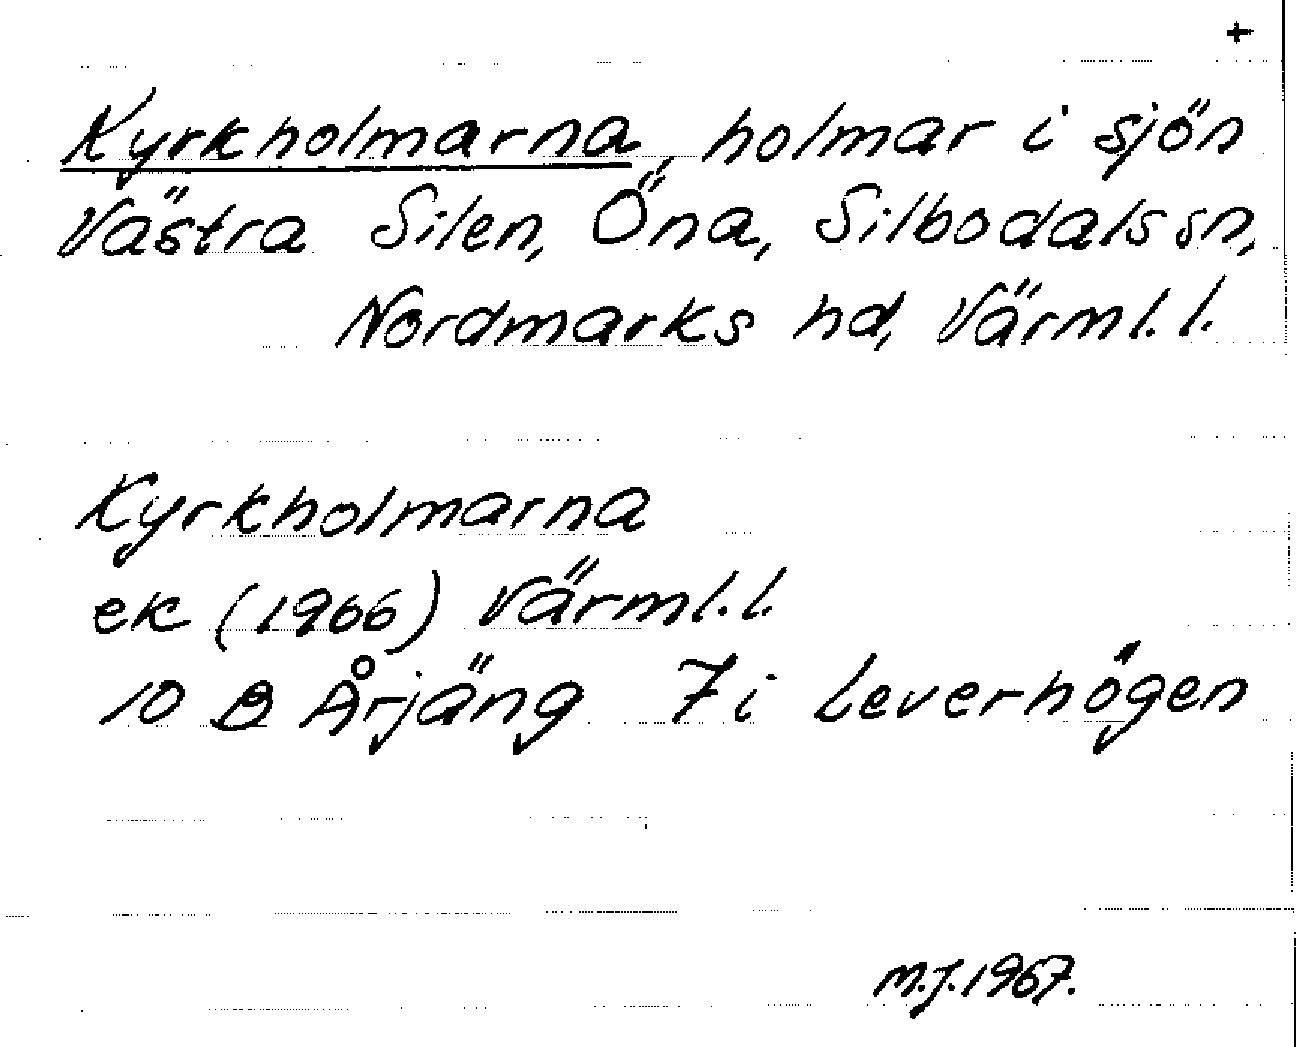 +
Kyrkholmarna, holmar i sjön
Västra Silen, Öna, Silbodals sn,
Nordmarks hd, Värml. l.
Kyrkholmarna
ek (1966) Värml. l.
10 B Årjäng 7i Leverhögen
M.J. 1967.